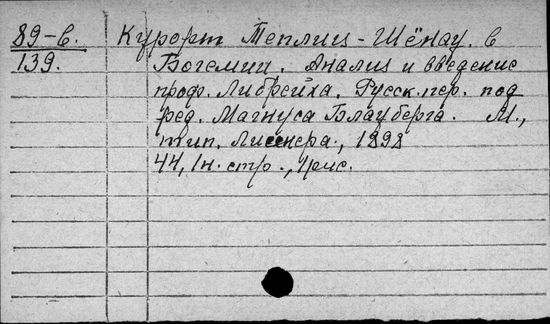 89-в.
139.
Курорт Теплиц-Шёнау. в
Богемии. Анализ и введение
проф. Либрейха. Русск. пер. под
ред. Магнуса Блауберга. М.,
тип. Лисснера., 1898
44, 1н. стр., 1рис.